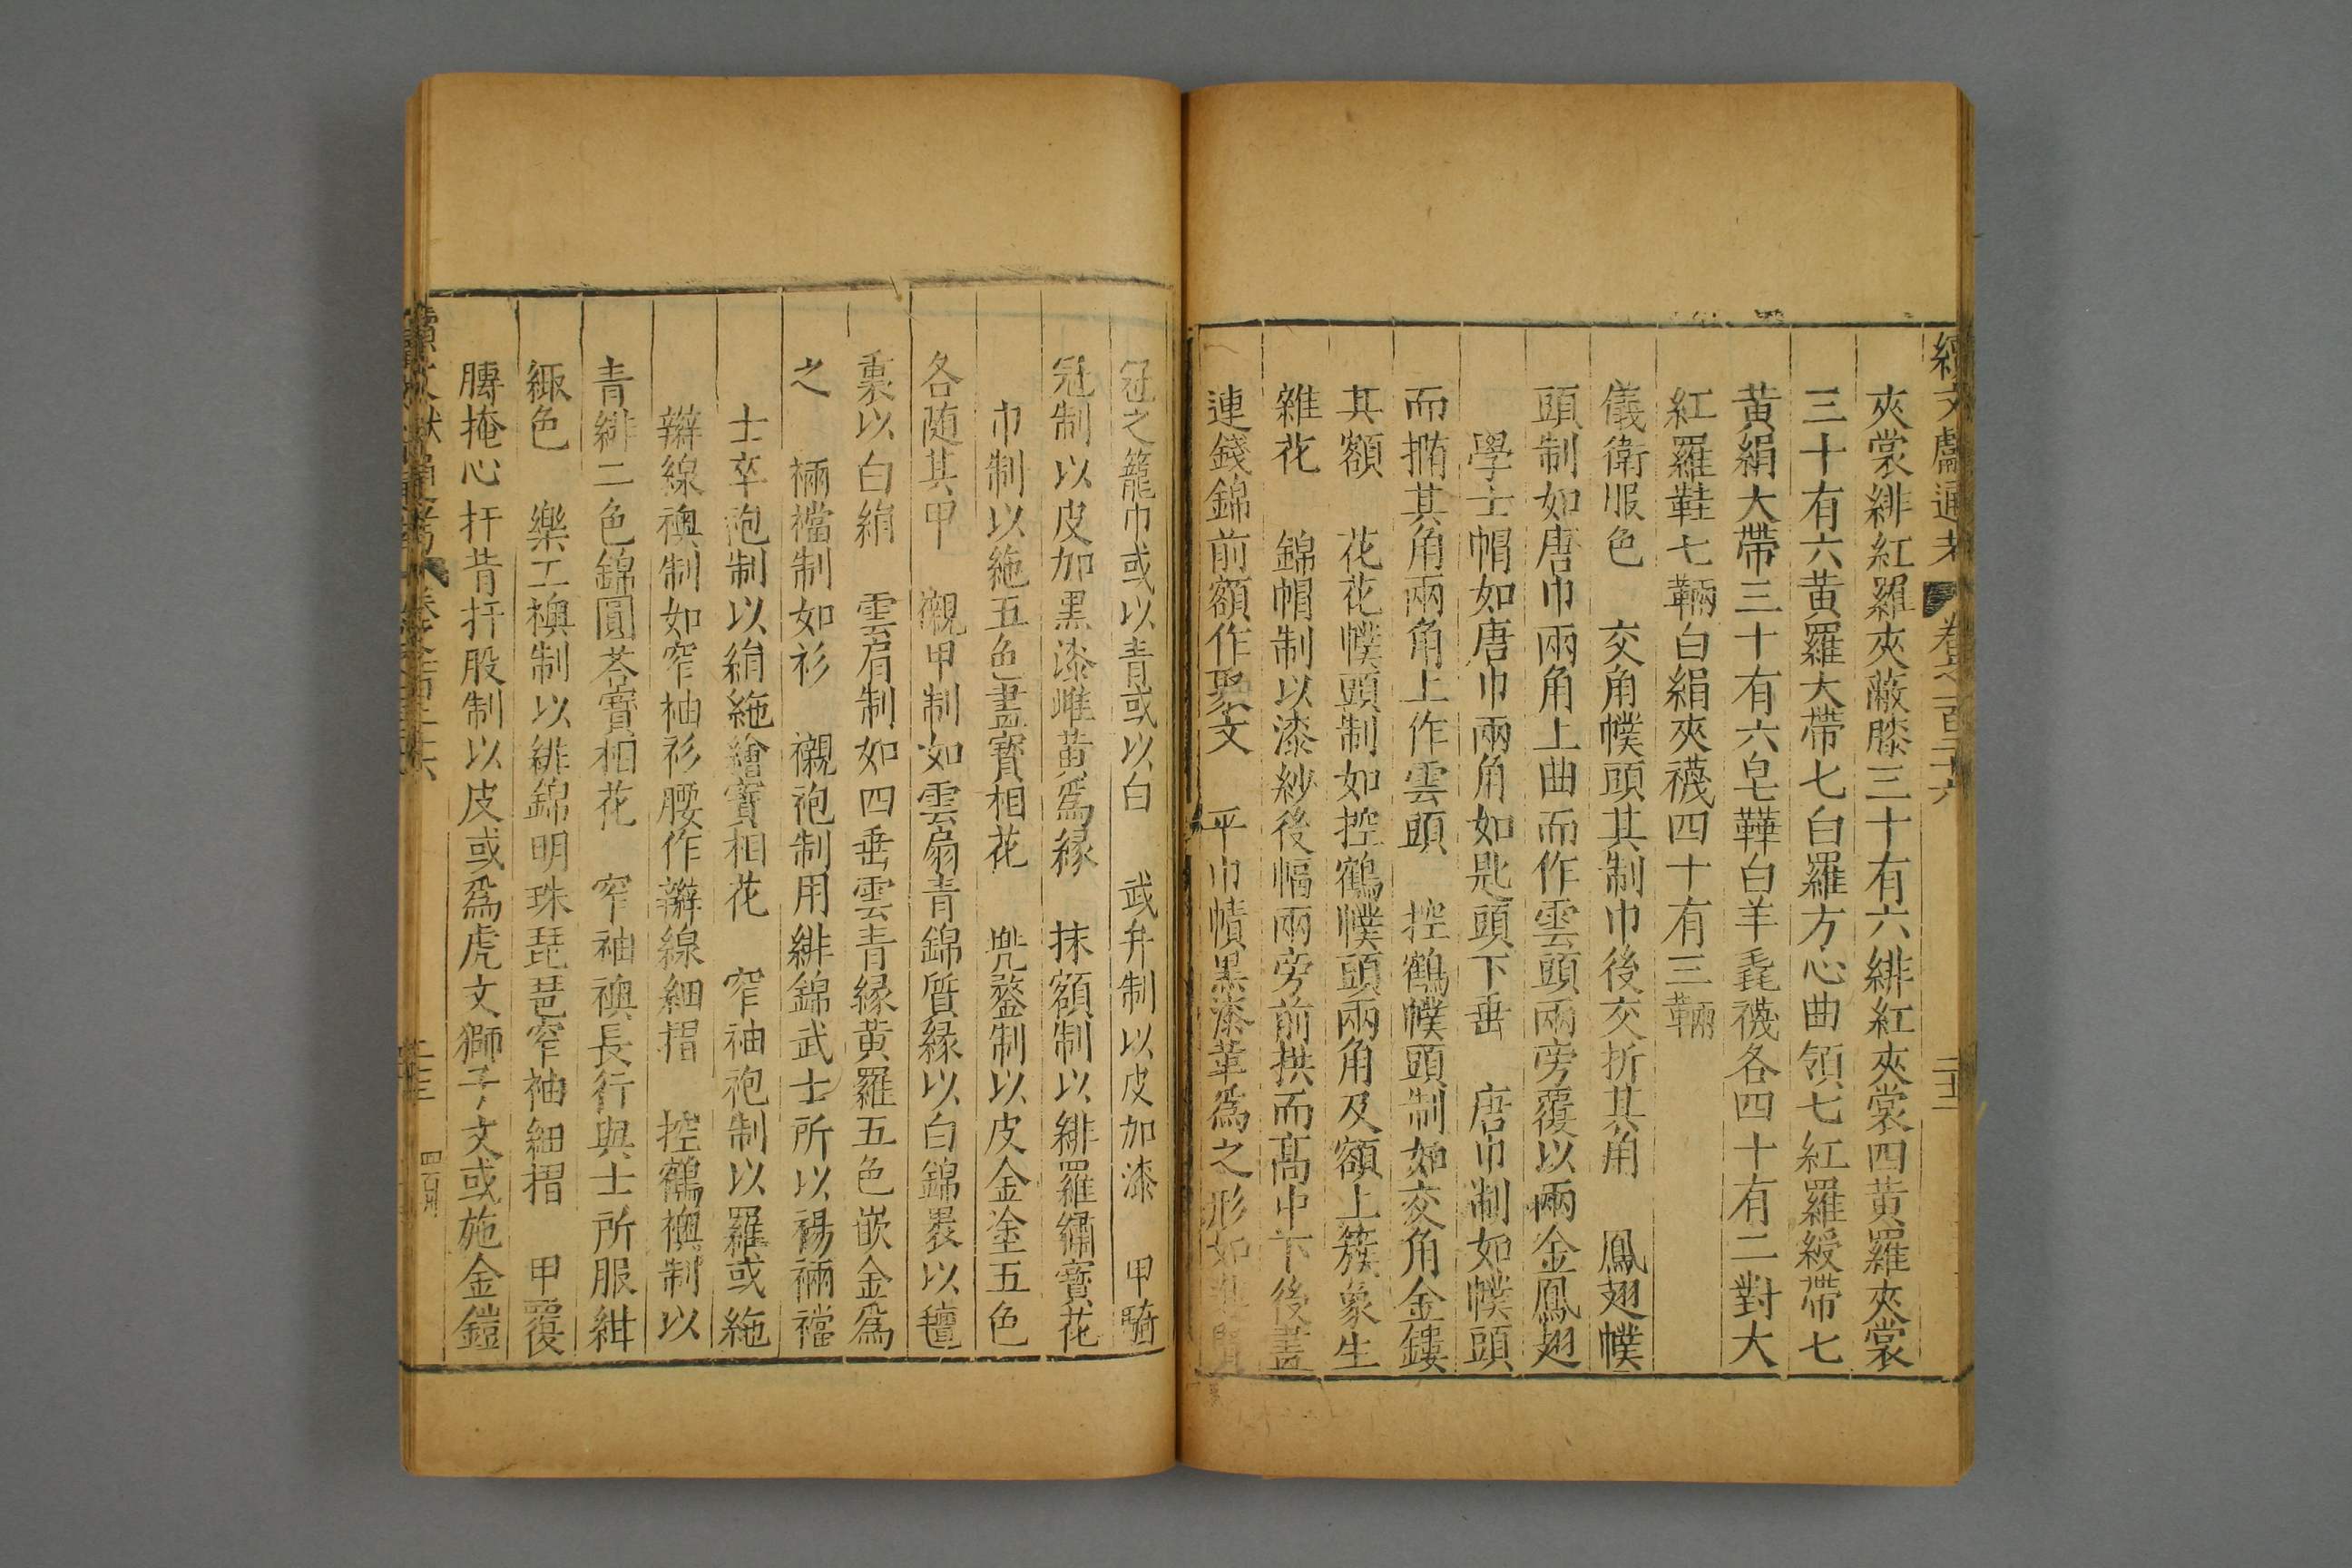 續文獻通考 卷之一百二十六 二十二
夾裳緋紅羅夾蔽膝三十有六緋紅夾裳四黃羅夾裳
三十有六黃羅大帶七白羅方心曲領七紅羅綬帶七
黃絹大帶三十有六皂鞾白羊毳襪各四十有二對大
紅羅鞋七輛白絹夾襪四十有三輛
儀衛服色 交角幞頭其制巾後交折其角 鳳翅幞
頭制如唐巾兩角上曲而作雲頭兩旁覆以兩金鳳翅
學士帽如唐巾兩角如匙頭下垂 唐巾制如幞頭
而撱其角兩角上作雲頭 控鶴幞頭制如交角金鏤
其額 花花幞頭制如控鶴幞頭兩角及額上簇象生
雜花 錦帽制以漆紗後幅兩旁前拱而高中下後蓋
連錢錦前額作聚文 平巾幘黑漆革為之形如進賢
冠之籠巾或以青或以白 武弁制以皮加漆 甲騎
冠制以皮加黑漆雌黃為緣 抹額制以緋羅繡寶花
巾制以絁五色畫寶相花 兜鍪制以皮金塗五色
各隨其甲 襯甲制如雲扇青錦質緣以白錦裹以氊
裏以白絹 雲肩制如四垂雲青緣黃羅五色嵌金為
之 裲襠制如衫 襯袍制用緋錦武士所以裼裲襠
士卒袍制以絹絁繪寶相花 窄袖袍制以羅或絁
辮線襖制如窄袖衫腰作辮線細摺 控鶴襖制以
青緋二色錦圓荅寶相花 窄袖襖長行輿士所服紺
緅色 樂工襖制以緋錦明珠琵琶窄袖細摺 甲覆
膊掩心扞背扞股制以皮或為虎文獅子文或施金鎧